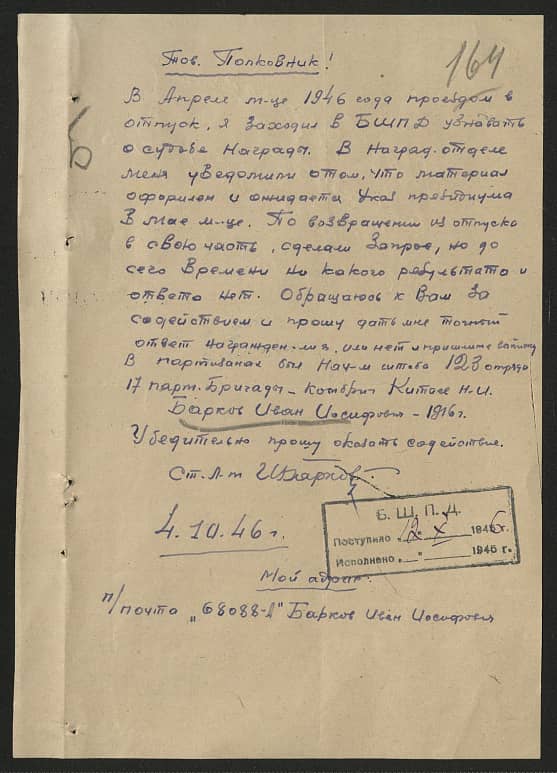 164
Тов. Полковник!
В Апреле м-це 1946 года проездом в
отпуск, я заходил в БШПД узнавать
о судьбе Награды. В Наград. отделе
меня уведомили о том, что материал
оформлен и ожидается Указ презедиума
В мае м-це. По возвращении из отпуска
в свою часть, сделали Запрос, но до
сего Времени ни какого результата и
ответа нет. Обращаюсь к Вам За
содействием и прошу дать мне точный
ответ награжден-ли я, или нет и пришлите
В партизанах был Нач-м штаба 123 отряда
17 парт. Бригады - комбриг Китаев Н-И.
Барков Иван Иосифович - 1916 г.
Убедительно прошу оказать содействие.
Ст. Л-т ИБарков.
4.10.46 г.
Б. Ш. П. Д.
Поступило „12" X 1946 г.
Исполнено „ " 1946 г.
Мой адрес:
п/почта „68088-А" Барков Иван Иосифович